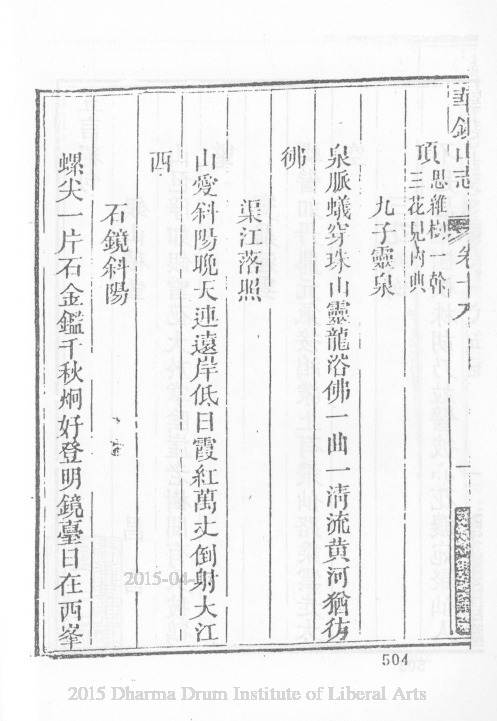 華銀山志 卷十九
項 思雜樹一幹三花見內典
九子靈泉
泉脈蟻穿珠山靈龍浴佛一曲一清流黄河猶彷
彿
渠江落照
山愛斜陽晚天連遠岸低日霞紅萬丈倒射大江
西
石鏡斜陽
螺尖一片石金鑑千秋炯好登明鏡臺日在西峯
504
2015-04-
2015 Dharma Drum Institute of Liberal Arts